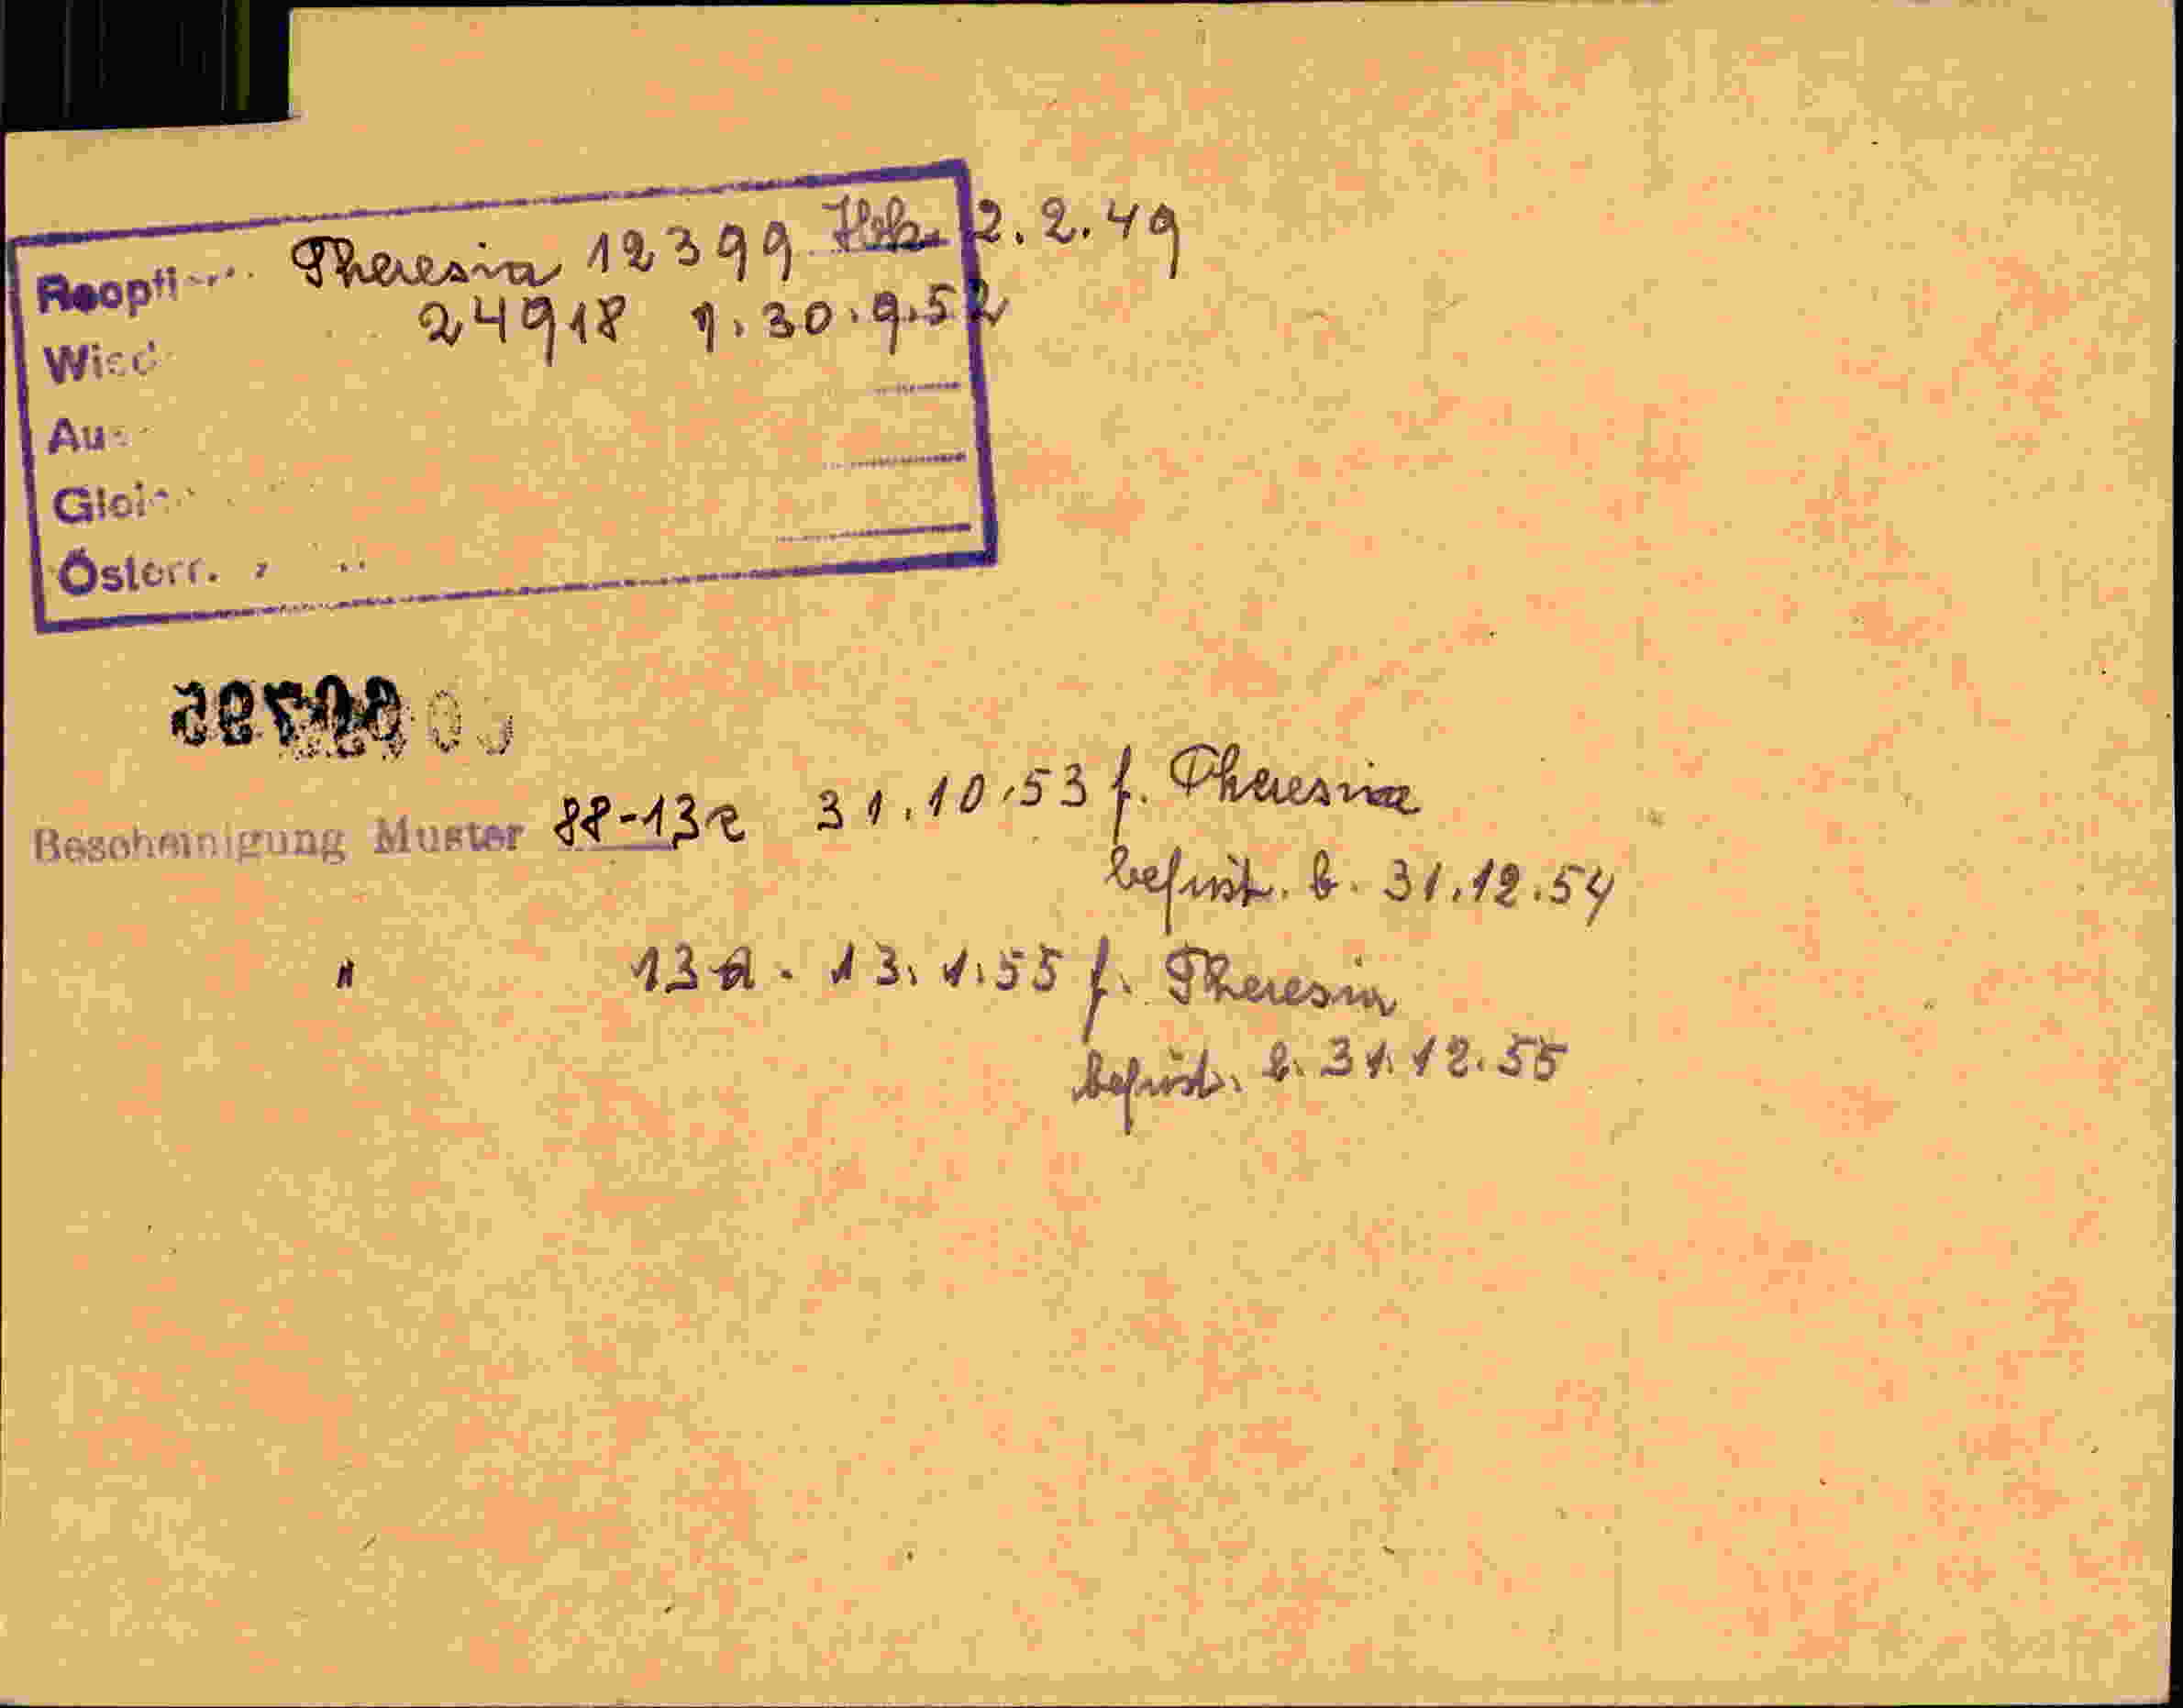 Theresia 12399 2.2.49
24918 1.30.9.52
Österr.
Bescheinigung Muster 88-13a 31.10.53 f. Theresia
befrist. b. 31.12.54
" 13a. 13.1.55 f. Theresia
befrist. b. 31.12.55